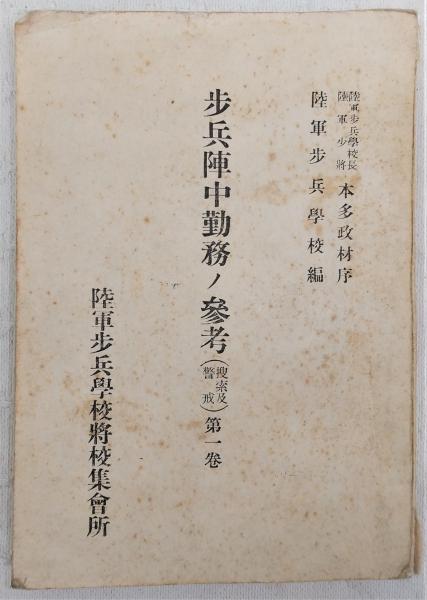 陸軍步兵學校長
陸軍少將
本多政材序
陸軍步兵學校編
步兵陣中勤務ノ參考(搜索及警戒)第一卷
陸軍步兵學校將校集會所